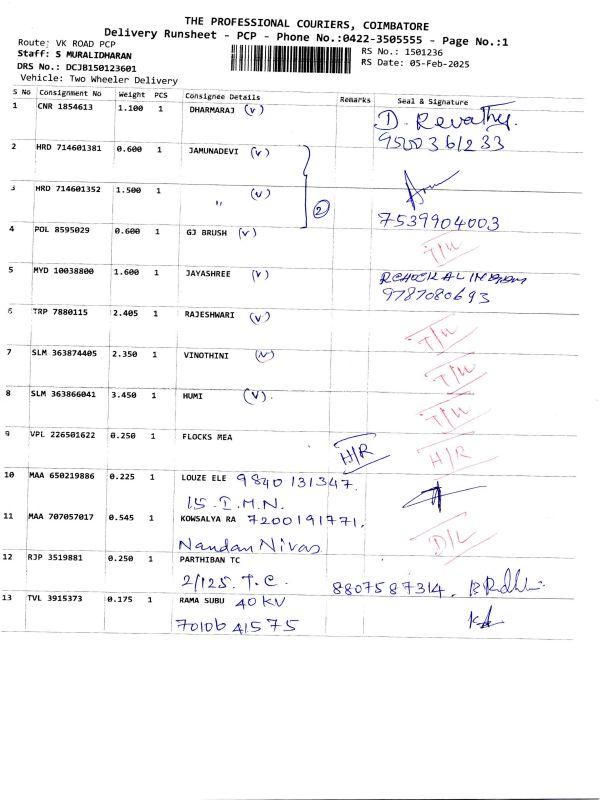 THE PROFESSIONAL COURIERS, COIMBATORE
Delivery Runsheet - PCP - Phone No.:0422-3505555 - Page No.:1
Route: VK ROAD PCP
Staff: S MURALIDHARAN
DRS No.: DCJB150123601
Vehicle: Two Wheeler Delivery
RS No.: 1501236
RS Date: 05-Feb-2025
S No Consignment No Weight PCS Consignee Details Remarks Seal & Signature
1 CNR 1854613 1.100 1 DHARMARAJ (v) D. Revathy.
9500361233
2 HRD 714601381 0.600 1 JAMUNADEVI (v)
3 HRD 714601352 1.500 1 " (v) 2
7539904003
4 POL 8595029 0.600 1 GJ BRUSH (v) T/U
5 MYD 10038800 1.600 1 JAYASHREE (v)
9787080693
6 TRP 7880115 2.405 1 RAJESHWARI (v) T/U
7 SLM 363874405 2.350 1 VINOTHINI (v) T/U
8 SLM 363866041 3.450 1 HUMI (v). T/U
9 VPL 226501622 0.250 1 FLOCKS MEA H/R H/R
10 MAA 650219886 0.225 1 LOUZE ELE 9840131347.
15. I.M.N.
11 MAA 707057017 0.545 1 KOWSALYA RA 7200191771. D/L
Nandan Nivas
12 RJP 3519881 0.250 1 PARTHIBAN TC
2/125. T.C. 8807587314.
13 TVL 3915373 0.175 1 RAMA SUBU 40 KV
7010641575